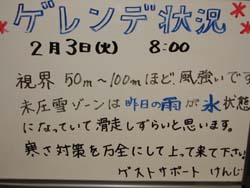 ゲレンデ状況
2月3日(火) 8:00
視界 50m~100mほど 風強いです
未圧雪ゾーンは昨日の雨が氷状態
になっていて滑走しずらいと思います。
寒さ対策を万全にして上って来て下さい。
ゲストサポート けんじ